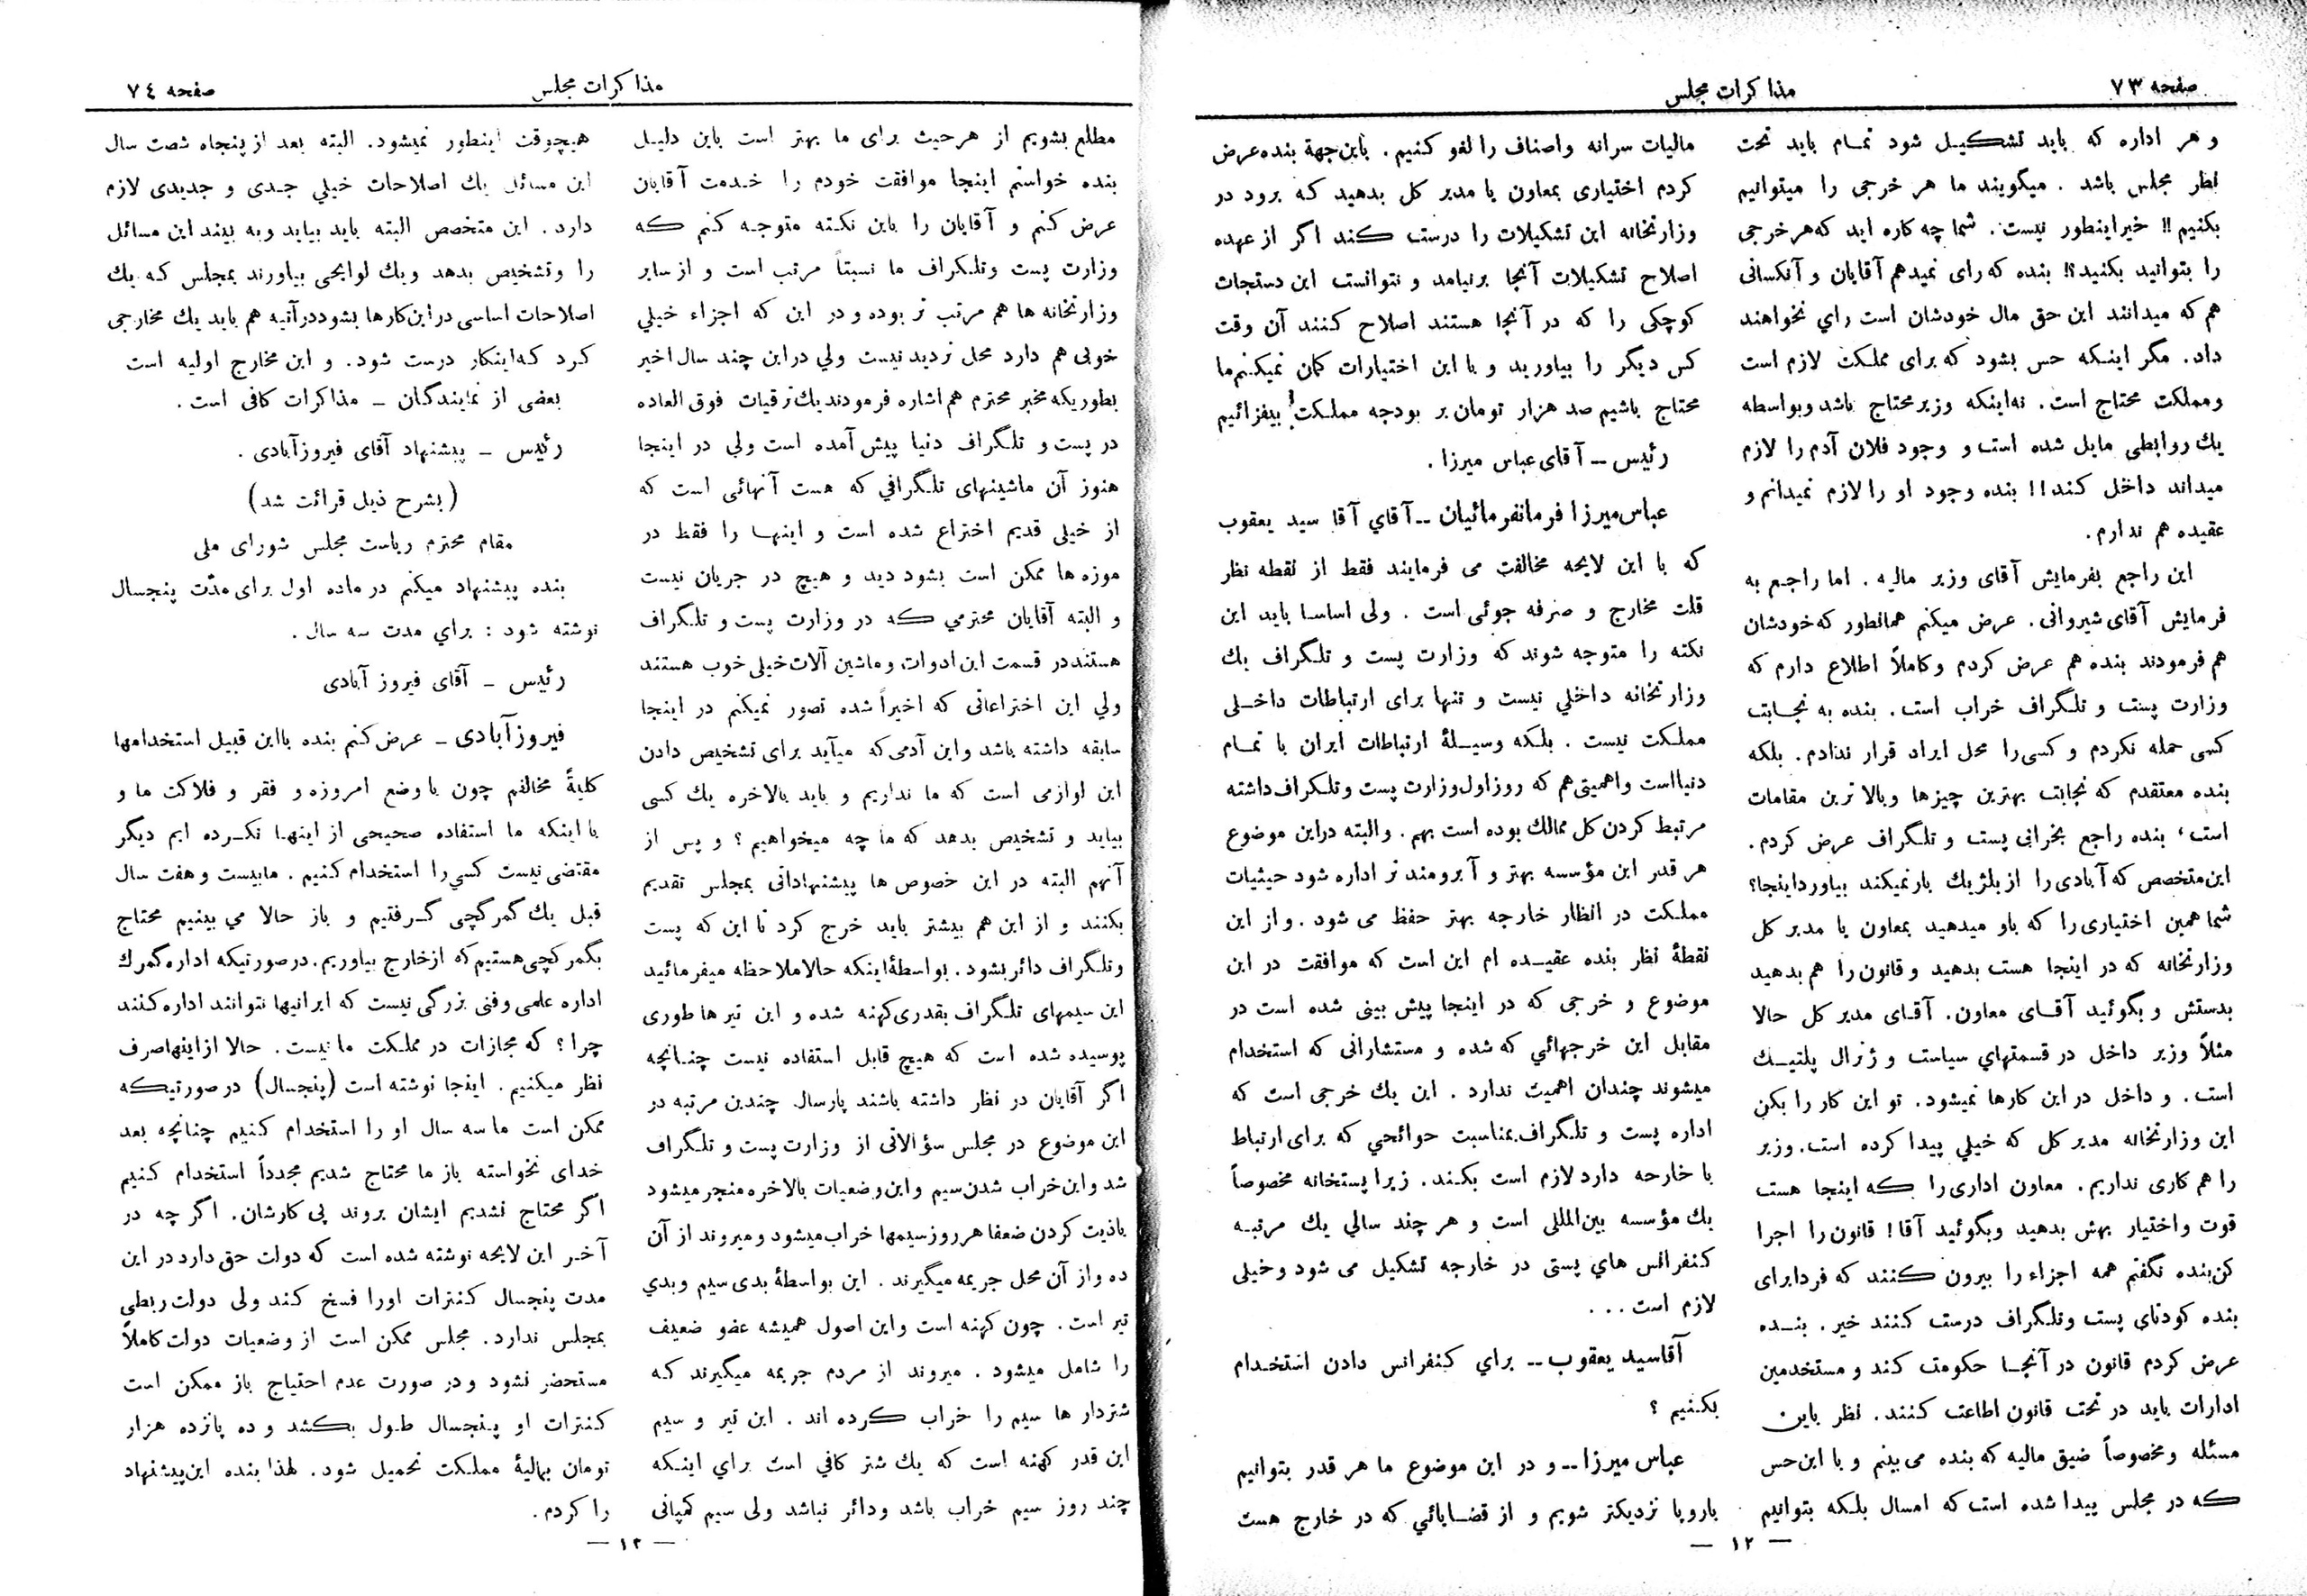 صفحه ۷۳
مذاکرات مجلس
و هر اداره که باید تشکیل شود تمام باید تحت
نظر مجلس باشد . میگویند ما هر خرجی را میتوانیم
بکنیم !! خیر اینطور نیست . شما چه کاره اید که هر خرجی
را بتوانید بکنید ؟! بنده که رای نمیدهم آقایان و آنکسانی
هم که میدانند این حق مال خودشان است راي نخواهند
داد . مگر اینکه حس بشود که برای مملکت لازم است
و مملکت محتاج است . نه اینکه وزیر محتاج باشد و بواسطه
يك روابطی مایل شده است و وجود فلان آدم را لازم
میداند داخل کند !! بنده وجود او را لازم نمیدانم و
عقیده هم ندارم .
این راجع بفرمایش آقای وزیر مالیه . اما راجع به
فرمایش آقای شیروانی . عرض میکنم همانطور که خودشان
هم فرمودند بنده هم عرض کردم و کاملاً اطلاع دارم که
وزارت پست و تلگراف خراب است . بنده به نجابت
کسی حمله نکردم و کسی را محل ایراد قرار ندادم . بلکه
بنده معتقدم که نجابت بهترین چیزها و بالاترین مقامات
است ، بنده راجع بخرابی پست و تلگراف عرض کردم .
این متخصص که آبادی را از بلژيك بار نمیکند بیاورد اینجا ؟
شما همین اختیاری را که باو میدهید بمعاون یا مدیر کل
وزارتخانه که در اینجا هست بدهید و قانون را هم بدهید
بدستش و بگوئید آقای معاون . آقای مدیر کل حالا
مثلاً وزیر داخل در قسمتهاي سیاست و ژنرال پلتيك
است . و داخل در این کارها نمیشود . تو این کار را بکن
این وزارتخانه مدیر کل که خیلي پیدا کرده است . وزیر
را هم کاری نداریم . معاون اداری را که اینجا هست
قوت و اختیار بهش بدهید و بگوئید آقا ! قانون را اجرا
کن بنده نگفتم همه اجزاء را بیرون کنند که فردا برای
بنده کودتاي پست و تلگراف درست کنند خیر . بنده
عرض کردم قانون در آنجا حکومت کند و مستخدمین
ادارات باید در تحت قانون اطاعت کنند . نظر باین
مسئله و مخصوصاً ضیق مالیه که بنده می بینم و با این حس
که در مجلس پیدا شده است که امسال بلکه بتوانیم
مالیات سرانه و اصناف را لغو کنیم . باین جهة بنده عرض
کردم اختیاری بمعاون یا مدیر کل بدهید که برود در
وزارتخانه این تشکیلات را درست کند اگر از عهده
اصلاح تشکیلات آنجا برنیامد و نتوانست این دستجات
کوچکی را که در آنجا هستند اصلاح کنند آن وقت
کس دیگر را بیاورید و با این اختیارات گمان نمیکنم ما
محتاج باشیم صد هزار تومان بر بودجه مملکت بیفزائیم
رئیس – آقای عباس میرزا .
عباس میرزا فرمانفرمائیان -- آقاي آقا سید یعقوب
که با این لایحه مخالفت می فرمایند فقط از نقطه نظر
قلت مخارج و صرفه جوئی است . ولی اساساً باید این
نکته را متوجه شوند که وزارت پست و تلگراف يك
وزارتخانه داخلي نیست و تنها برای ارتباطات داخلی
مملکت نیست . بلکه وسیلهٔ ارتباطات ایران با تمام
دنیا است و اهمیتی هم که روز اول وزارت پست و تلگراف داشته
مرتبط کردن کل ممالك بوده است بهم . و البته در این موضوع
هر قدر این مؤسسه بهتر و آبرومند تر اداره شود حیثیات
مملکت در انظار خارجه بهتر حفظ می شود . و از این
نقطهٔ نظر بنده عقیده ام این است که موافقت در این
موضوع و خرجی که در اینجا پیش بینی شده است در
مقابل این خرجهائي که شده و مستشارانی که استخدام
میشوند چندان اهمیت ندارد . این يك خرجی است که
اداره پست و تلگراف بمناسبت حوائجي که برای ارتباط
با خارجه دارد لازم است بکند . زیرا پستخانه مخصوصاً
يك مؤسسه بین المللی است و هر چند سالي يك مرتبه
کنفرانس هاي پستی در خارجه تشکیل می شود و خیلی
لازم است ...
آقا سید یعقوب -- براي کنفرانس دادن استخدام
بکنیم ؟
عباس میرزا -- و در این موضوع ما هر قدر بتوانیم
باروپا نزدیکتر شویم و از قضایائي که در خارج هست
— ۱۲ —
صفحه ۷۴
مذاکرات مجلس
مطلع بشویم از هر حیث برای ما بهتر است باین دلیل
بنده خواستم اینجا موافقت خودم را خدمت آقایان
عرض کنم و آقایان را باین نکته متوجه کنم که
وزارت پست و تلگراف ما نسبتاً مرتب است و از سایر
وزارتخانه ها هم مرتب تر بوده و در این که اجزاء خیلي
خوبی هم دارد محل تردید نیست ولي در این چند سال اخیر
بطوریکه مخبر محترم هم اشاره فرمودند يك ترقیات فوق العاده
در پست و تلگراف دنیا پیش آمده است ولي در اینجا
هنوز آن ماشینهای تلگرافي که هست آنهائی است که
از خیلی قدیم اختراع شده است و اینها را فقط در
موزه ها ممکن است بشود دید و هیچ در جریان نیست
و البته آقایان محترمي که در وزارت پست و تلگراف
هستند در قسمت این ادوات و ماشین آلات خیلی خوب هستند
ولي این اختراعاتی که اخیراً شده تصور نمیکنم در اینجا
سابقه داشته باشد و این آدمی که میآید برای تشخیص دادن
این لوازمی است که ما نداریم و باید بالاخره يك کسی
بیاید و تشخیص بدهد که ما چه میخواهیم ؟ و پس از
آنهم البته در این خصوص ها پیشنهاداتی بمجلس تقدیم
بکنند و از این هم بیشتر باید خرج کرد تا این که پست
و تلگراف دائر بشود . بواسطهٔ اینکه حالا ملاحظه میفرمائید
این سیمهای تلگراف بقدری کهنه شده و این تیرها طوری
پوسیده شده است که هیچ قابل استفاده نیست چنانچه
اگر آقایان در نظر داشته باشند پارسال چندین مرتبه در
این موضوع در مجلس سؤالاتی از وزارت پست و تلگراف
شد و این خراب شدن سیم و این وضعیات بالاخره منجر میشود
باذیت کردن ضعفا هر روز سیمها خراب میشود و میروند از آن
ده و از آن محل جریمه میگیرند . این بواسطهٔ بدی سیم و بدي
تیر است . چون کهنه است و این اصول همیشه عضو ضعیف
را شامل میشود . میروند از مردم جریمه میگیرند که
شتردار ها سیم را خراب کرده اند . این تیر و سیم
این قدر کهنه است که يك شتر کافي است براي اینکه
چند روز سیم خراب باشد و دائر نباشد ولی سیم کمپانی
هیچوقت اینطور نمیشود . البته بعد از پنجاه شصت سال
این مسائل يك اصلاحات خیلي جدی و جدیدی لازم
دارد . این متخصص البته باید بیاید و به بیند این مسائل
را و تشخیص بدهد و يك لوایحی بیاورند بمجلس که يك
اصلاحات اساسی در این کارها بشود در آتیه هم باید يك مخارجی
کرد که اینکار درست شود . و این مخارج اولیه است
بعضی از نمایندگان – مذاکرات کافی است .
رئیس – پیشنهاد آقای فیروزآبادی .
(بشرح ذیل قرائت شد)
مقام محترم ریاست مجلس شورای ملی
بنده پیشنهاد میکنم در ماده اول برای مدّت پنجسال
نوشته شود : براي مدت سه سال .
رئیس – آقای فیروز آبادی
فیروزآبادی – عرض کنم بنده با این قبیل استخدامها
کلیةً مخالفم چون با وضع امروزه و فقر و فلاکت ما و
با اینکه ما استفاده صحیحی از اینها نکرده ایم دیگر
مقتضی نیست کسي را استخدام کنیم . ما بیست و هفت سال
قبل يك گمرگچی گرفتیم و باز حالا مي بینیم محتاج
بگمرکچی هستیم که از خارج بیاوریم . در صورتیکه اداره گمرك
اداره علمی و فنی بزرگی نیست که ایرانیها نتوانند اداره کنند
چرا ؟ که مجازات در مملکت ما نیست . حالا از اینها صرف
نظر میکنیم . اینجا نوشته است (پنجسال) در صورتیکه
ممکن است ما سه سال او را استخدام کنیم چنانچه بعد
خدای نخواسته باز ما محتاج شدیم مجدداً استخدام کنیم
اگر محتاج نشدیم ایشان بروند پی کارشان . اگر چه در
آخر این لایحه نوشته شده است که دولت حق دارد در این
مدت پنجسال کنترات اورا فسخ کند ولی دولت ربطی
بمجلس ندارد . مجلس ممکن است از وضعیات دولت کاملاً
مستحضر نشود و در صورت عدم احتیاج باز ممکن است
کنترات او پنجسال طول بکشد و ده پانزده هزار
تومان بمالیهٔ مملکت تحمیل شود . لهذا بنده این پیشنهاد
را کردم .
— ۱۲ —